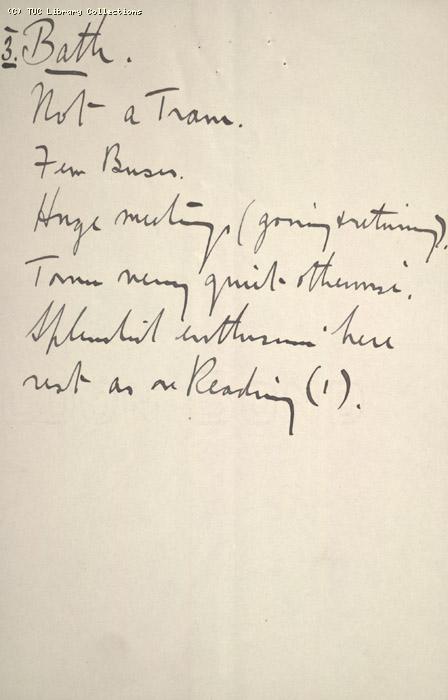 (C) TUC Library Collections
3. Bath.
Not a Tram.
Few Buses.
Huge meetings (going & returning).
Town very quiet otherwise.
Splendid enthusiasm here
rest as re Reading (1).